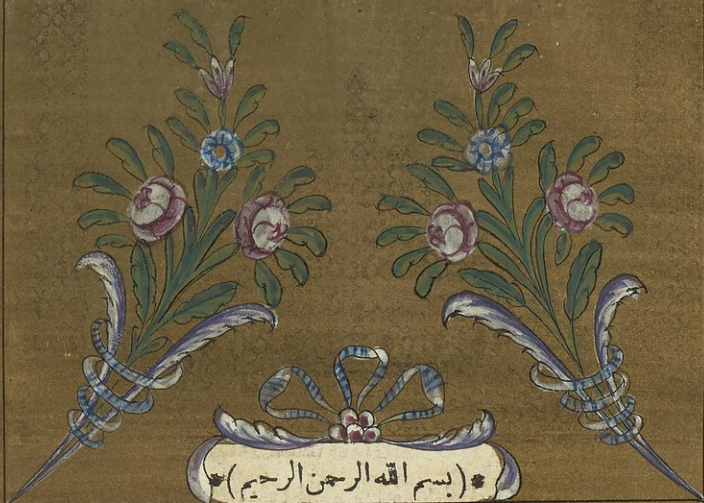 (بسم الله الرحمن الرحيم)